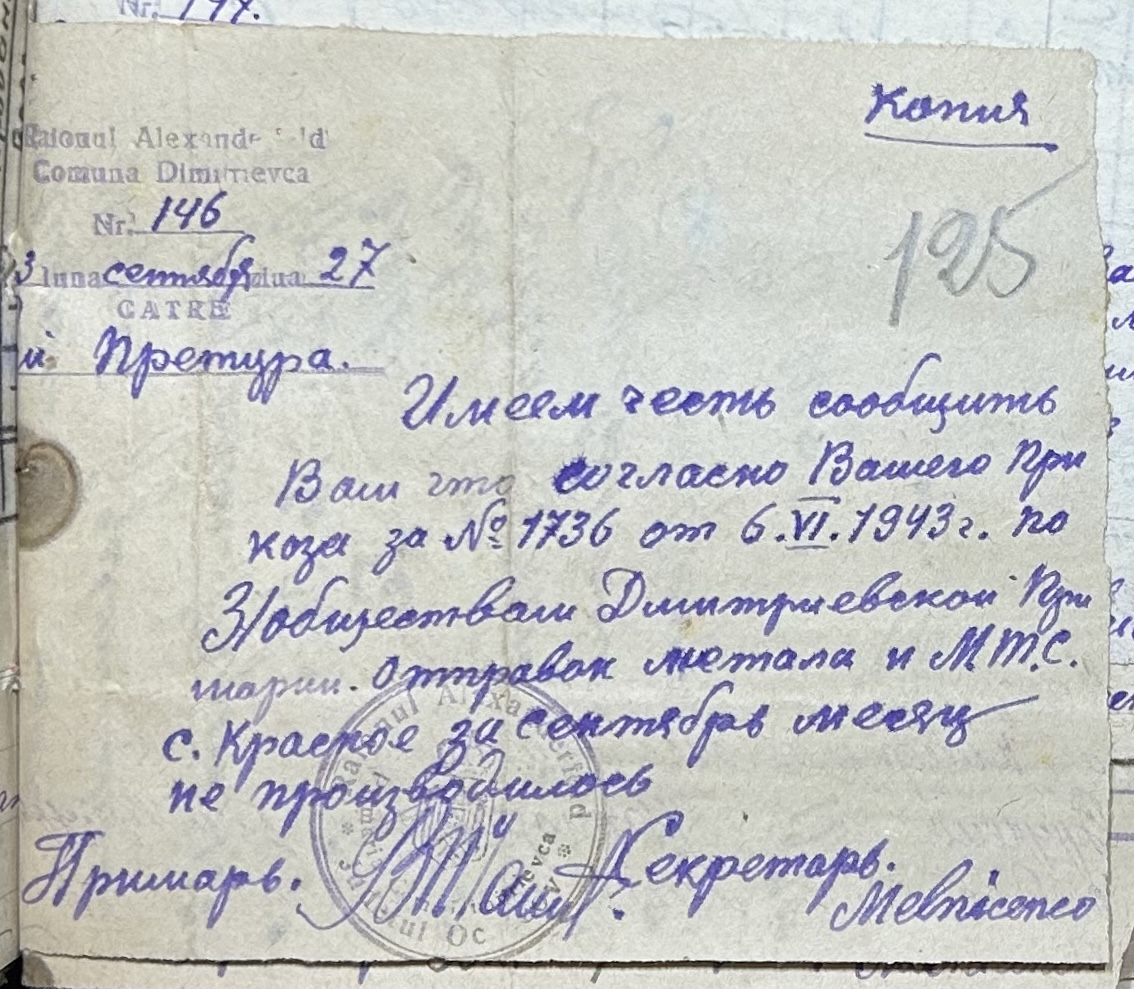 Nr. 197.
Копия
Raionul Alexanderfeld
Comuna Dimitrievca
Nr. 146
125
3 luna сентября ziua 27
CATRE
й Претура.
Имеем честь сообщить
Вам что согласно Вашего При
коза за № 1736 от 6.VI.1943 г. по
З/обществам Дмитриевской При
марии. отправок метала и М.Т.С.
с. Красное за сентябрь месяц
не производилось
Примарь. Секретарь.
Melnicenco
Raionul Alexanderfeld